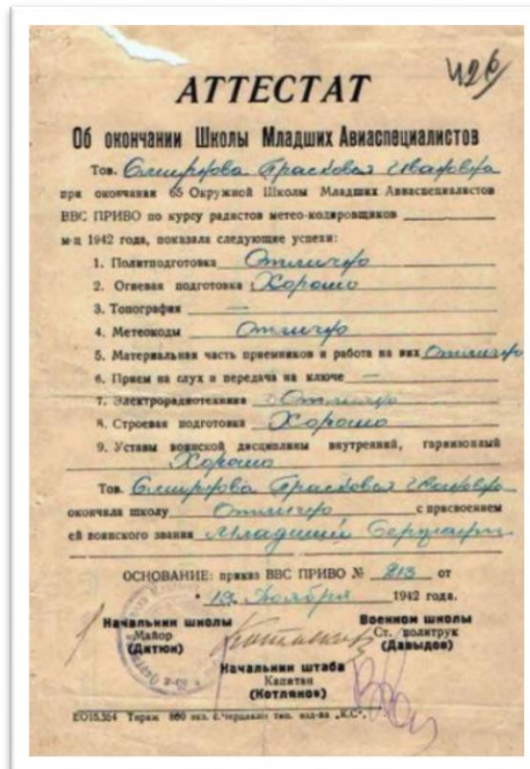 426
АТТЕСТАТ
Об окончании Школы Младших Авиаспециалистов
Тов. Смирнова Прасковья Ивановна
при окончании 65 Окружной Школы Младших Авиаспециалистов
ВВС ПРИВО по курсу радистов метео-кодировщиков
м-ц 1942 года, показала следующие успехи:
1. Политподготовка Отлично
2. Огневая подготовка Хорошо
3. Топография —
4. Метеокоды Отлично
5. Материальная часть приемников и работа на них Отлично
6. Прием на слух и передача на ключе —
7. Электрорадиотехника Отлично
8. Строевая подготовка Хорошо
9. Уставы воинской дисциплины внутренний, гарнизонный
Хорошо
Тов. Смирнова Прасковья Ивановна
окончила школу Отлично с присвоением
ей воинского звания Младший Сержант
ОСНОВАНИЕ: приказ ВВС ПРИВО № 813 от
13 Ноября 1942 года.
Начальник школы
Майор
(Дитюн)
Военком школы
Ст. политрук
(Давыдов)
Начальник штаба
Капитан
(Котляков)
Тираж 800 экз. тип. изд-ва „К.С".